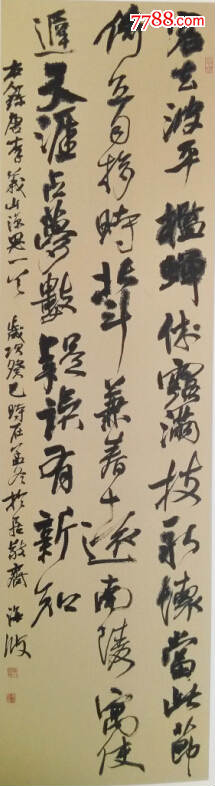 7788.com
客去波平檻蟬休露滿枝永懷當此節
倚立自移時北斗兼春遠南陵寓使
遲天涯占夢數疑誤有新知
錄唐李義山涼思一首 歲次癸巳時在孟冬於居敬齋 海波